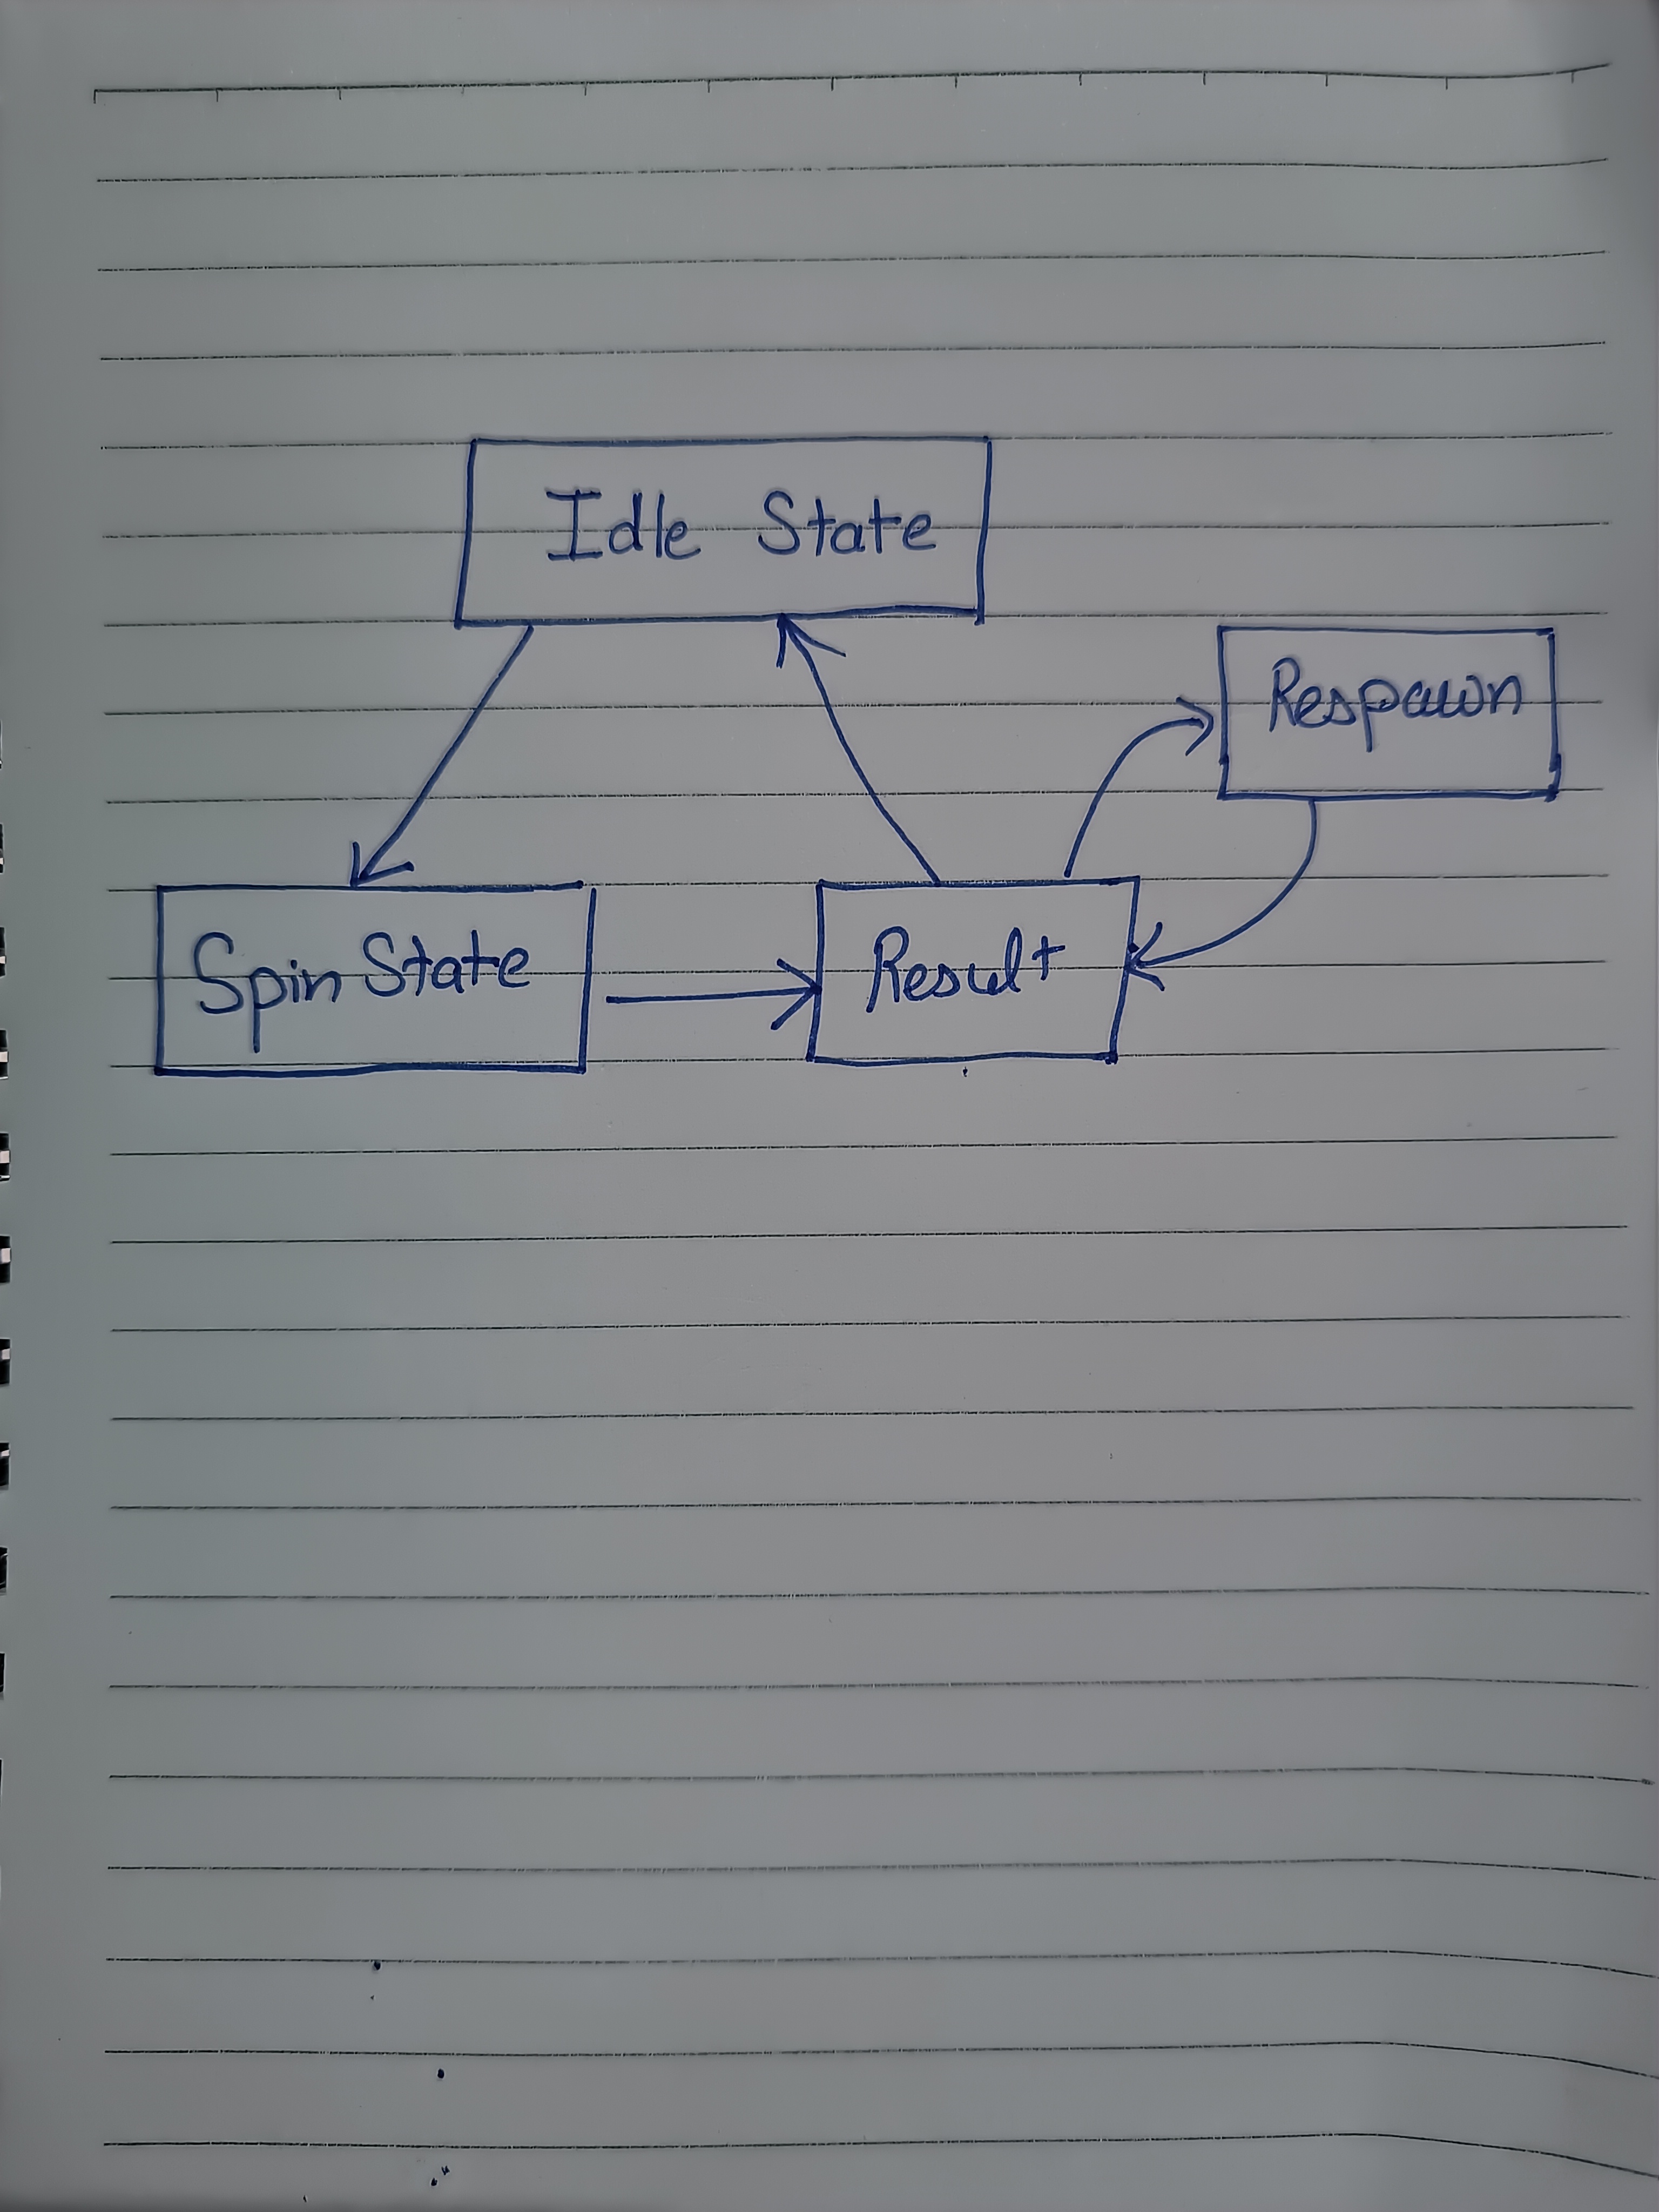 Idle State
Respawn
Spin State
Result